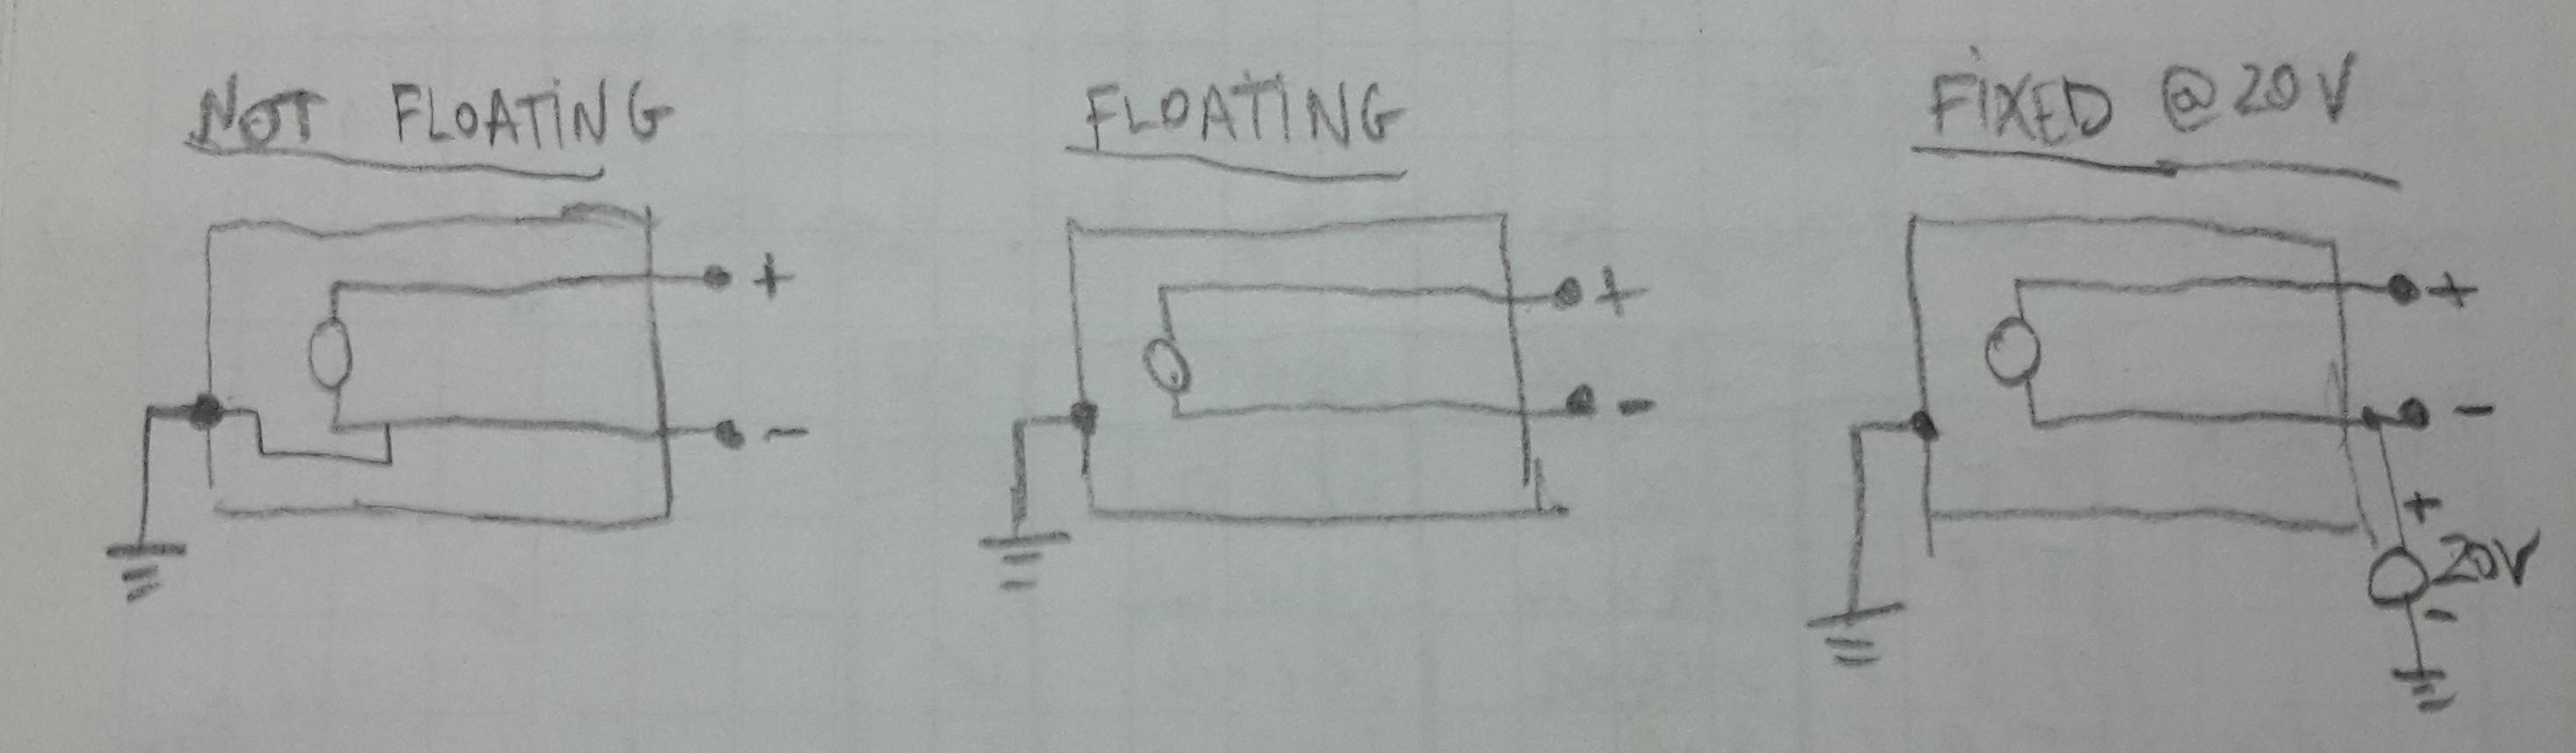 NOT FLOATING
+
-
FLOATING
+
-
FIXED @ 20 V
+
-
+
20V
-